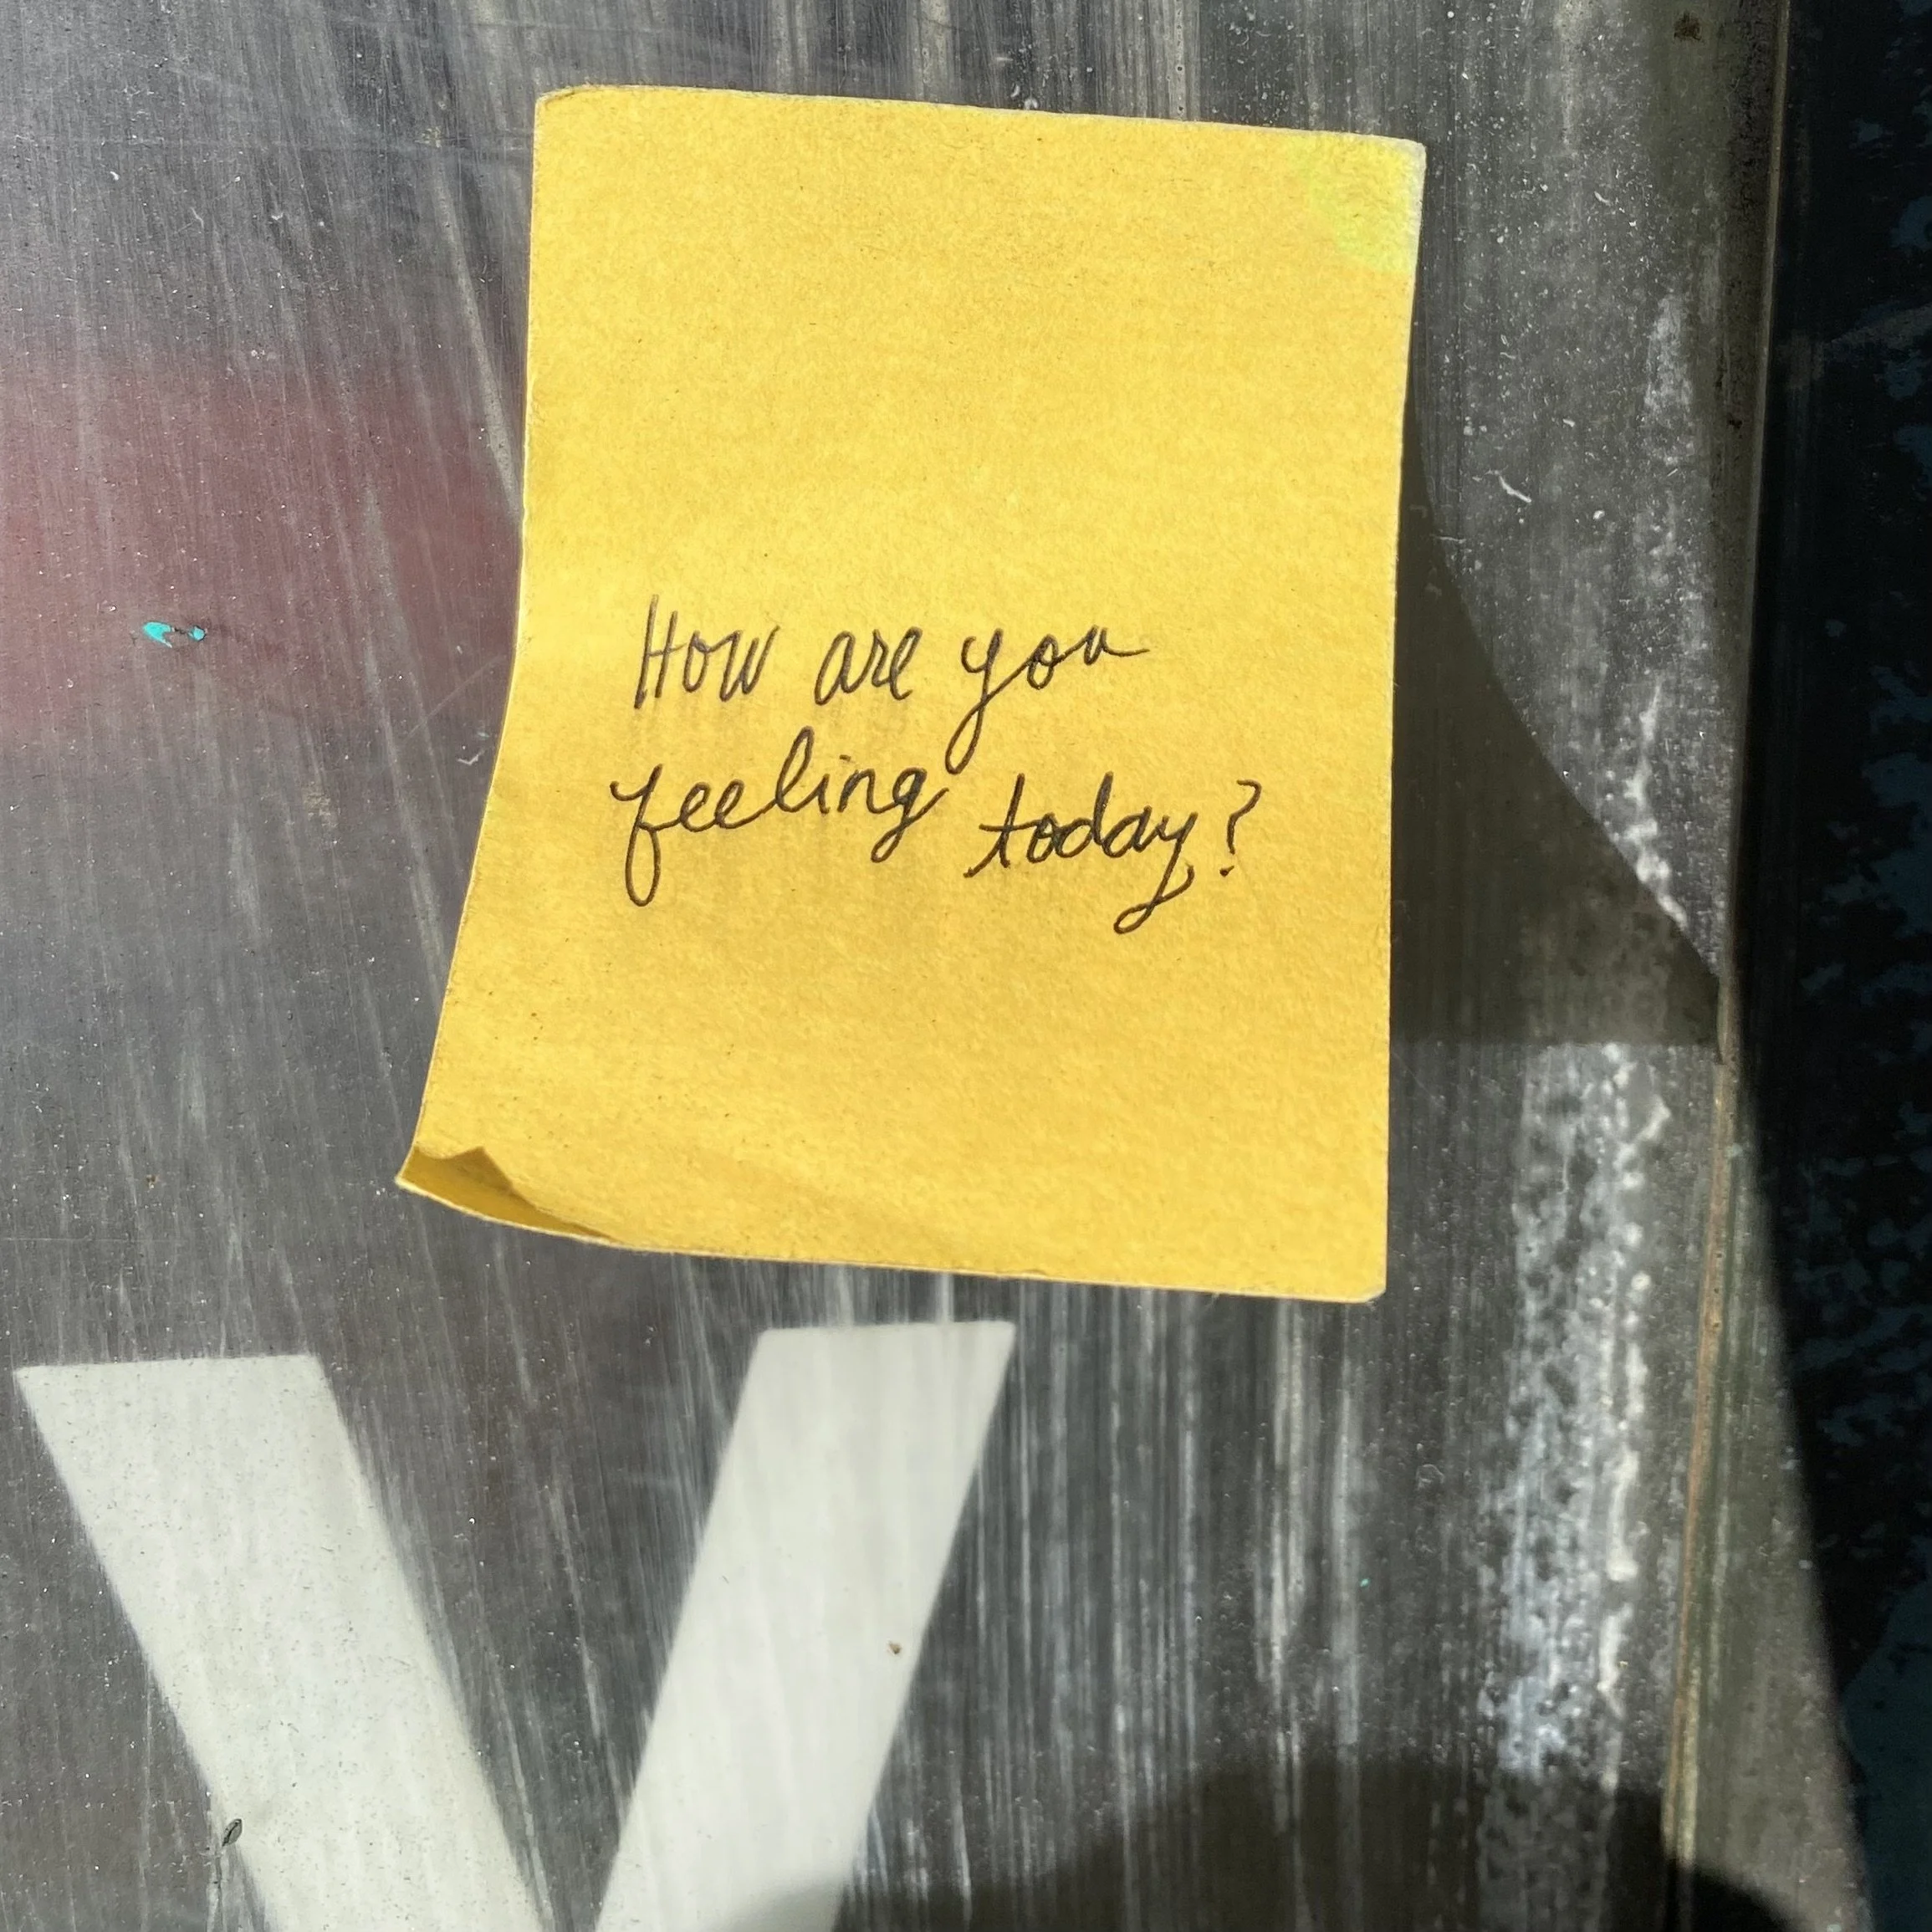 How are you
feeling today?
Y